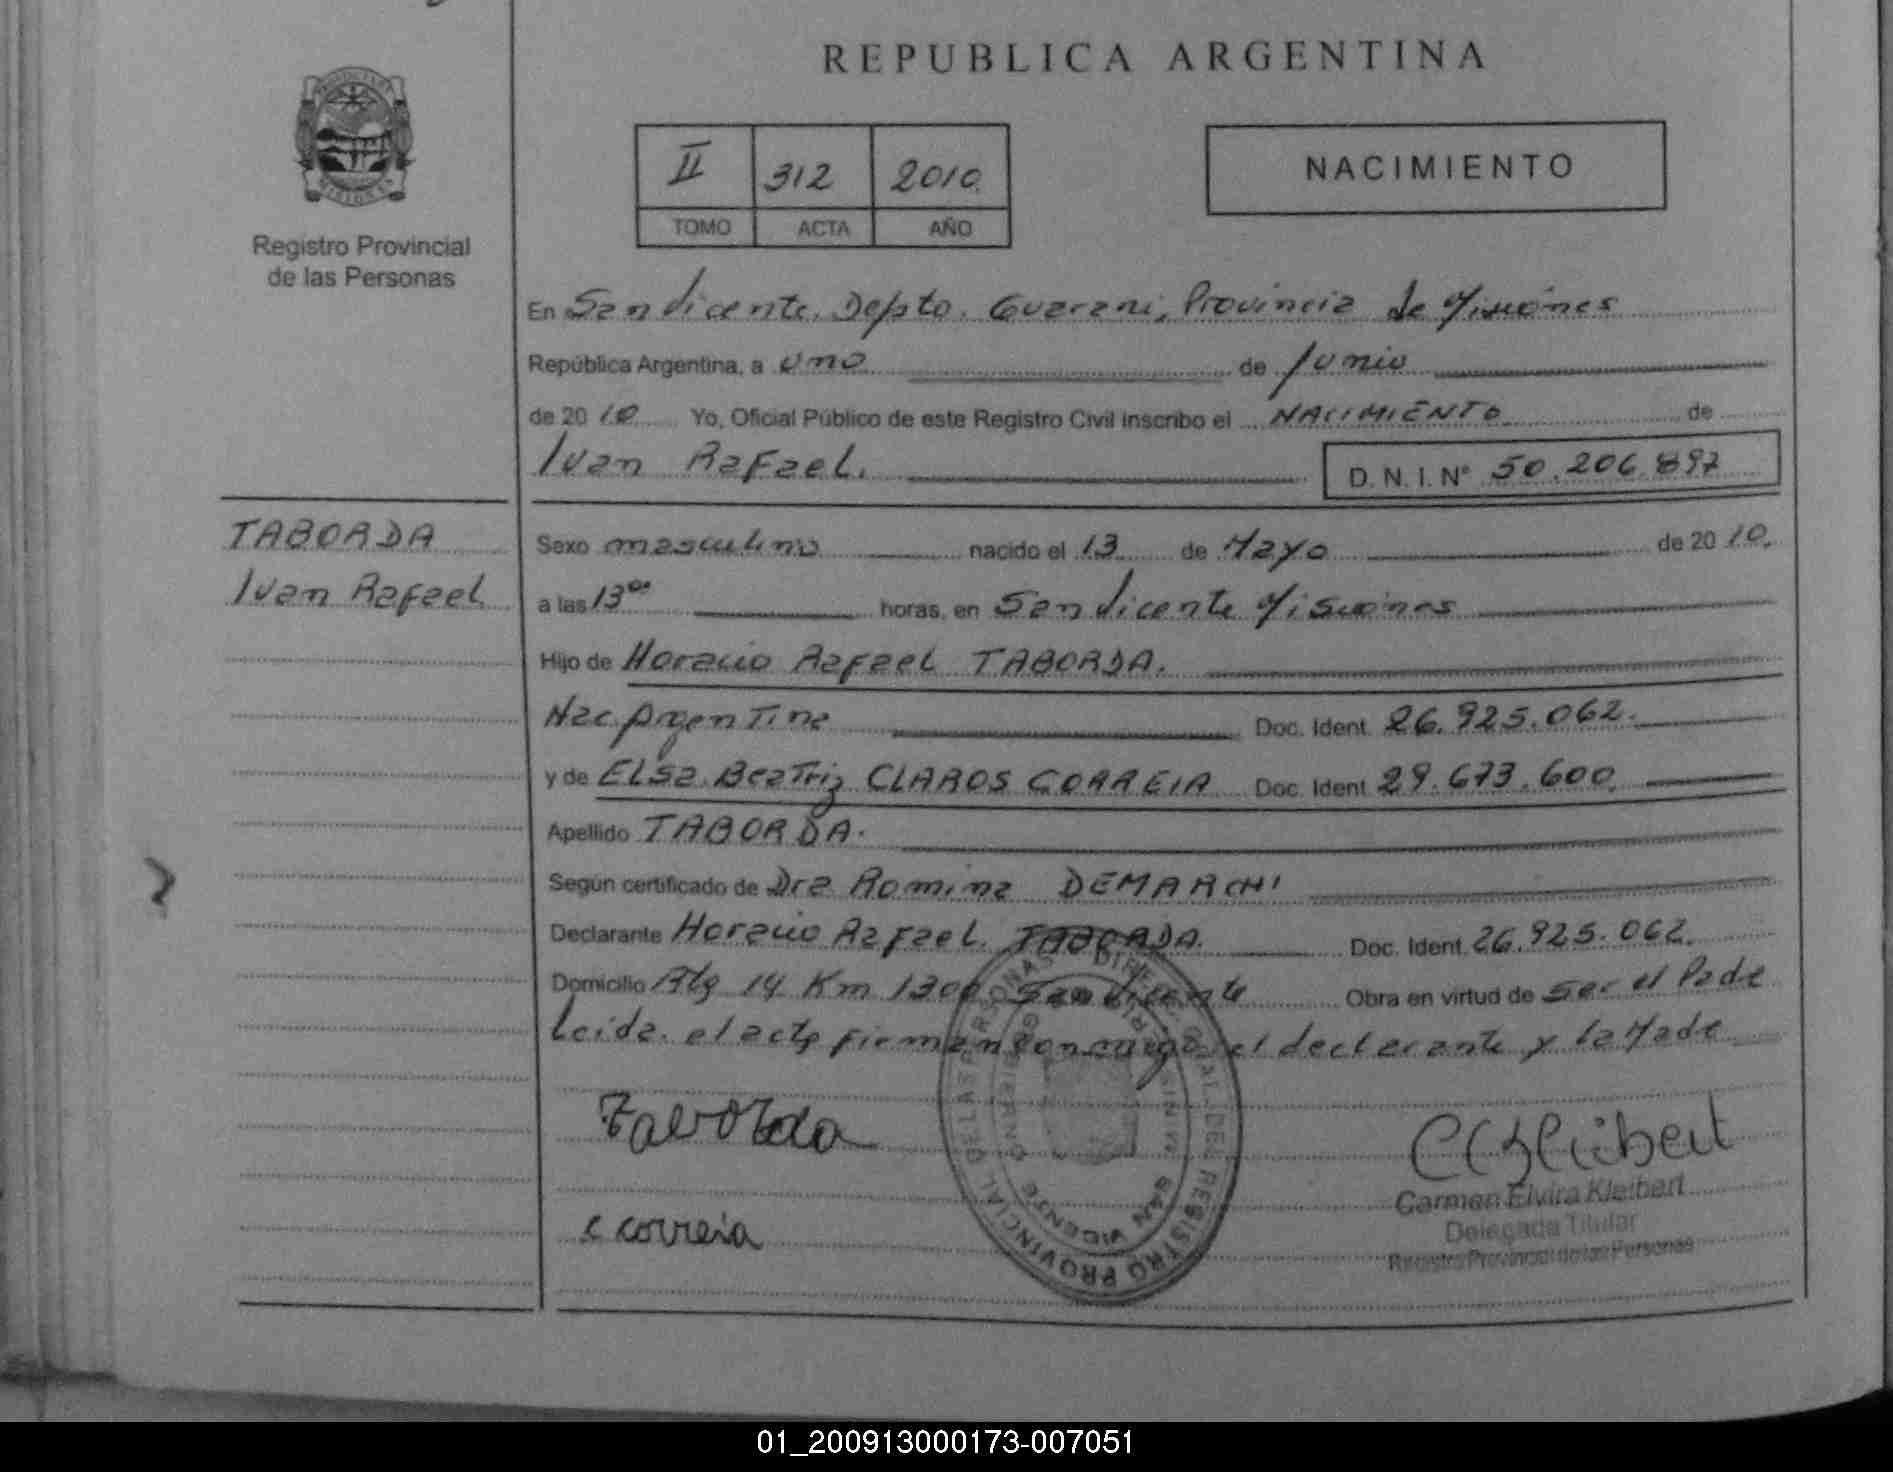 REPUBLICA ARGENTINA
II 312 2010
TOMO ACTA AÑO
NACIMIENTO
Registro Provincial
de las Personas
En San Vicente, Depto. Guarani, Provincia de Misiones
República Argentina, a uno de Junio
de 20 10 Yo, Oficial Público de este Registro Civil inscribo el NACIMIENTO de
Ivan Rafael. D. N. I. N° 50.206.897
TABORDA
Ivan Rafael
Sexo masculino nacido el 13 de Mayo de 20 10.
a las 13⁰⁰ horas, en San Vicente Misiones
Hijo de Horacio Rafael TABORDA.
Nac. Argentina Doc. Ident. 26.925.062.
y de ELSa Beatriz CLAROS CORREIA Doc. Ident. 29.673.600.
Apellido TABORDA.
Según certificado de Dra Romina DEMARCHI
Declarante Horacio Rafael TABORDA. Doc. Ident. 26.925.062.
Domicilio Rta 14 Km 1300 San Vicente Obra en virtud de ser el Padre
Leida el acta firman conmigo, el declarante y la Madre
DIREC. GRAL. DEL REGISTRO PROVINCIAL DE LAS PERSONAS
SAN VICENTE
Taborda
CEKleibert
Carmen Elvira Kleibert
Delegada Titular
Registro Provincial de las Personas
c correia
01_200913000173-007051